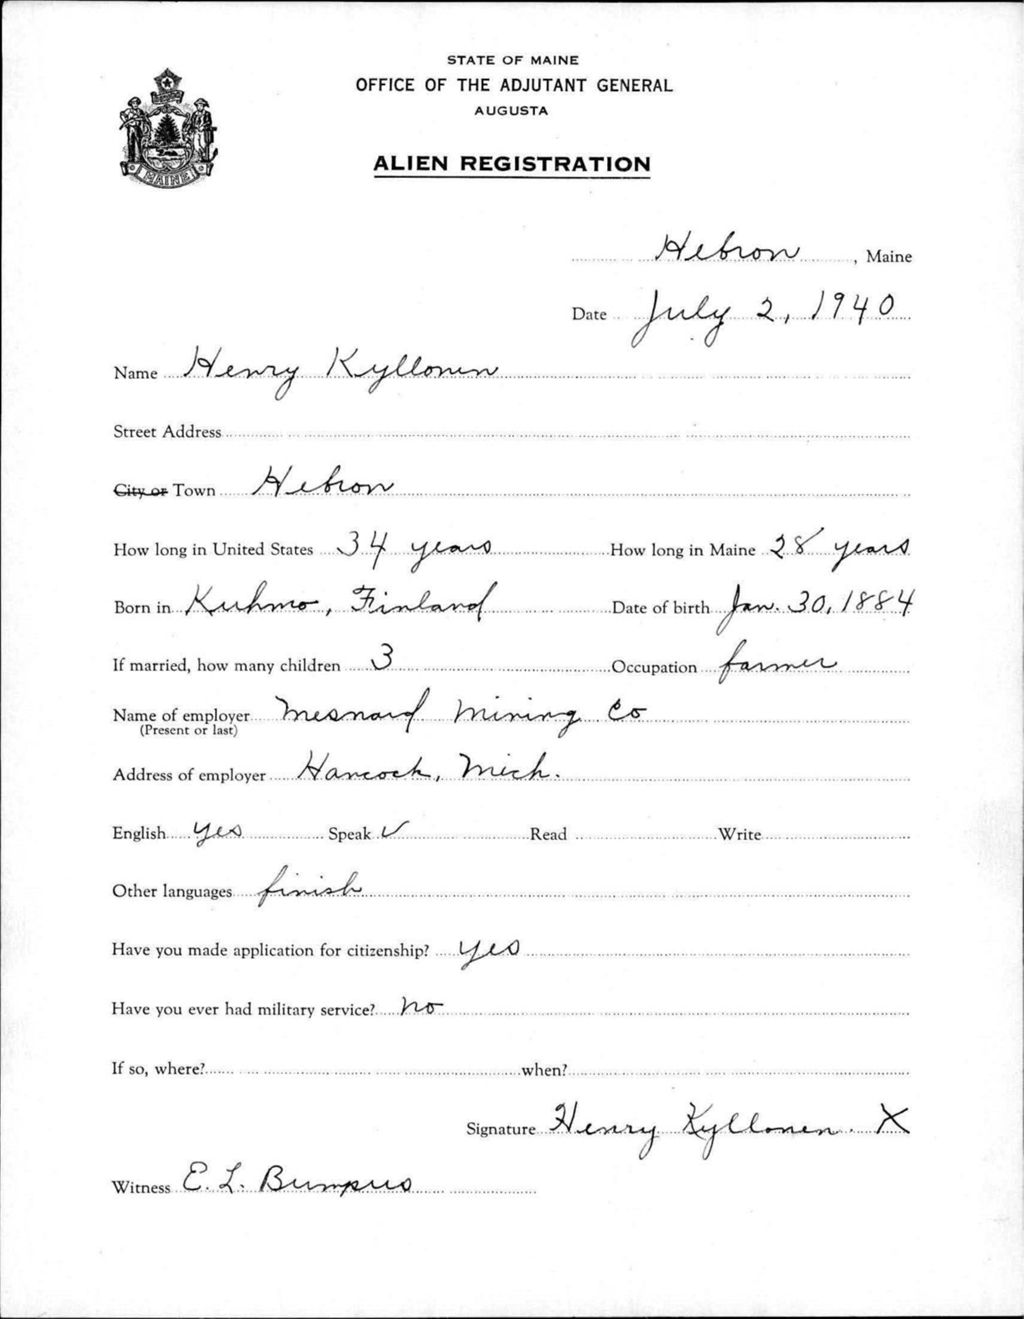 STATE OF MAINE
OFFICE OF THE ADJUTANT GENERAL
AUGUSTA
ALIEN REGISTRATION
MAINE
Hebron, Maine
Date July 2, 1940
Name Henry Kyllonen
Street Address
City or Town Hebron
How long in United States 34 years How long in Maine 28 years
Born in Kuhmo, Finland Date of birth Jan. 30, 1884
If married, how many children 3 Occupation farmer
Name of employer Mesnard Mining Co
(Present or last)
Address of employer Hancock, Mich.
English yes Speak ✓ Read Write
Other languages finish
Have you made application for citizenship? yes
Have you ever had military service? no
If so, where? when?
Signature Henry Kyllonen. X
Witness E. L. Bumpus